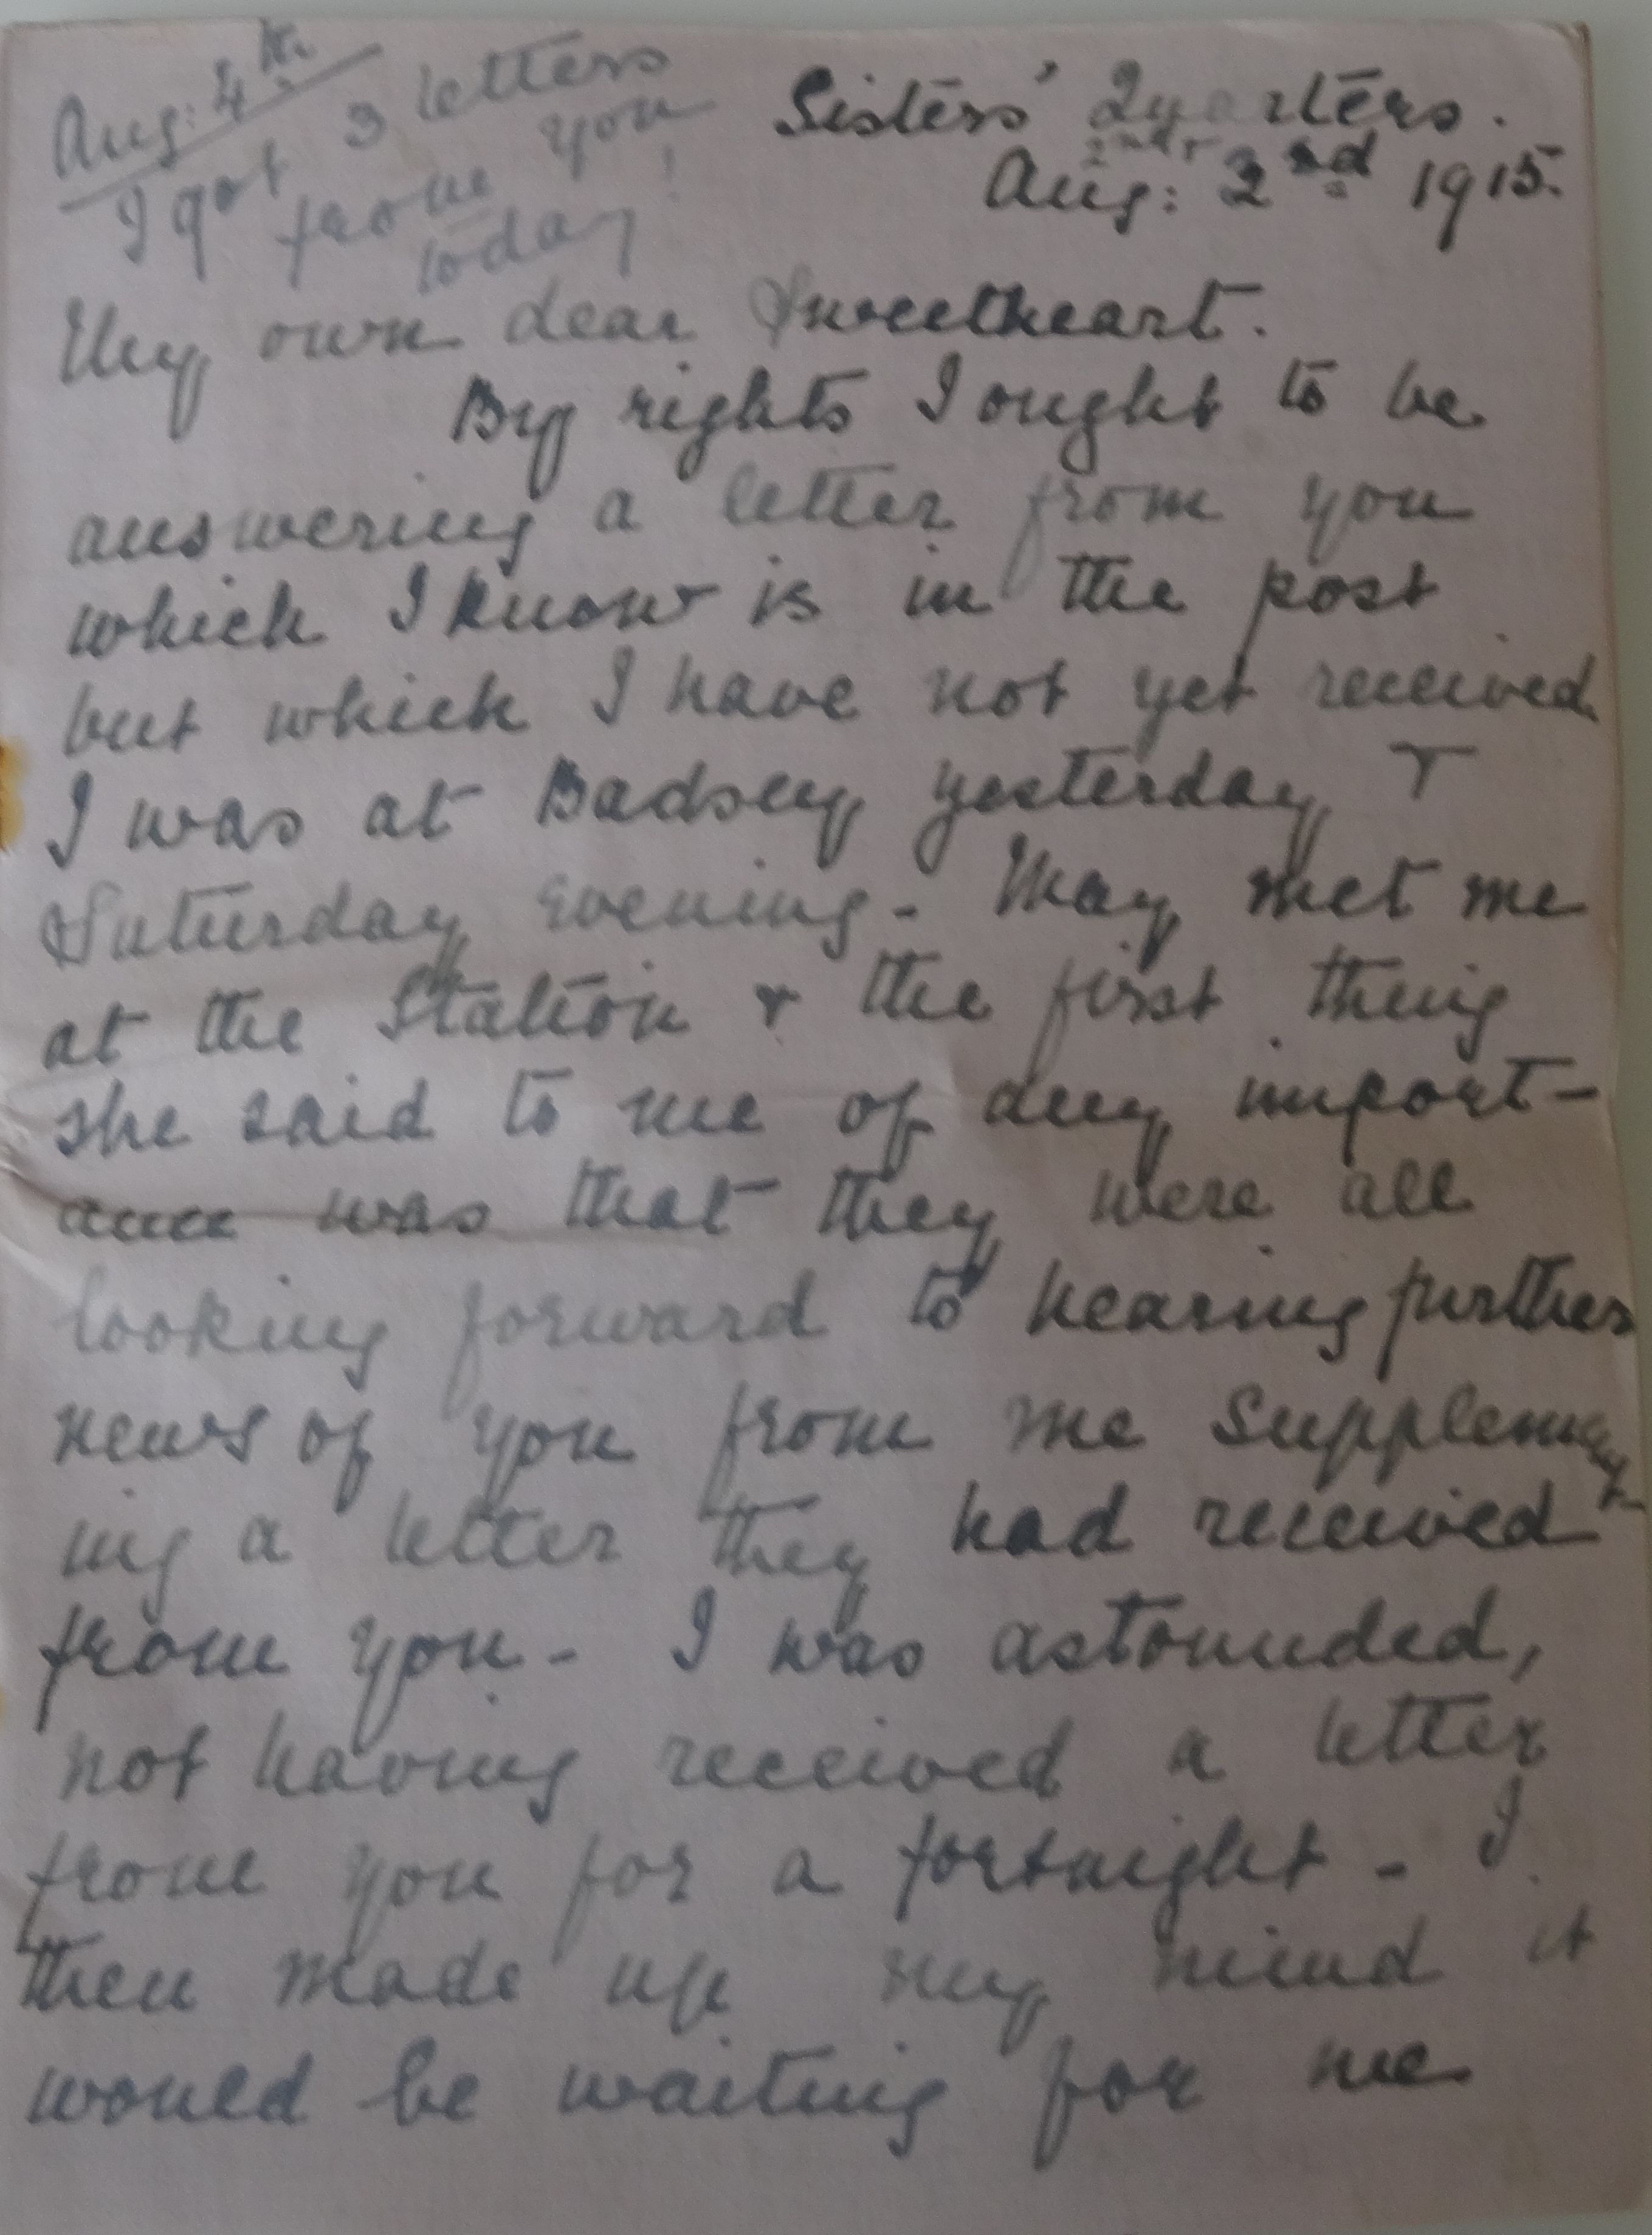 Aug: 4th
I got 3 letters
from you
today!
Sisters' Quarters.
Aug: 2nd 1915.
My own dear Sweetheart.
By rights I ought to be
answering a letter from you
which I know is in the post
but which I have not yet received
I was at Badsey yesterday &
Saturday evening - May met me
at the Station & the first thing
she said to me of any import-
ance was that they were all
looking forward to hearing further
news of you from me supplement-
ing a letter they had received
from you - I was astounded,
not having received a letter
from you for a fortnight - I
then made up my mind it
would be waiting for me